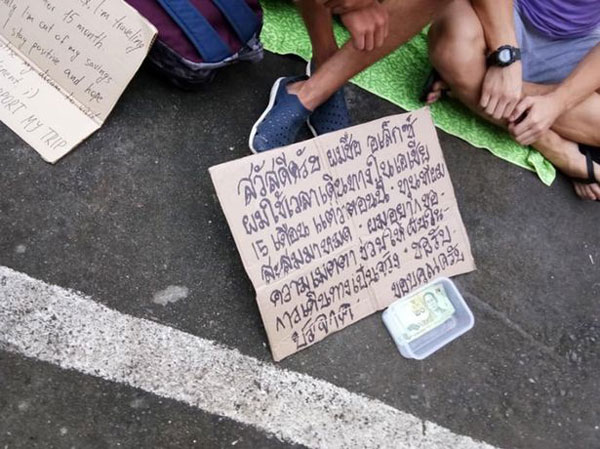 , I'm traveling
15 month
I'm out of my savings
stay positive and hope
:)
PORT MY TRIP
สวัสดีครับ ผมชื่อ อเล็กซ์
ผมใช้เวลาเดินทางในเอเชีย
15 เดือน แต่ว่าตอนนี้ ทุนที่ผม
สะสมมาหมด ผมอยากขอ
ความเมตตา ช่วยให้ฝันใน
การเดินทางเป็นจริง ขอรับ
บริจาค ขอบคุณครับ
20